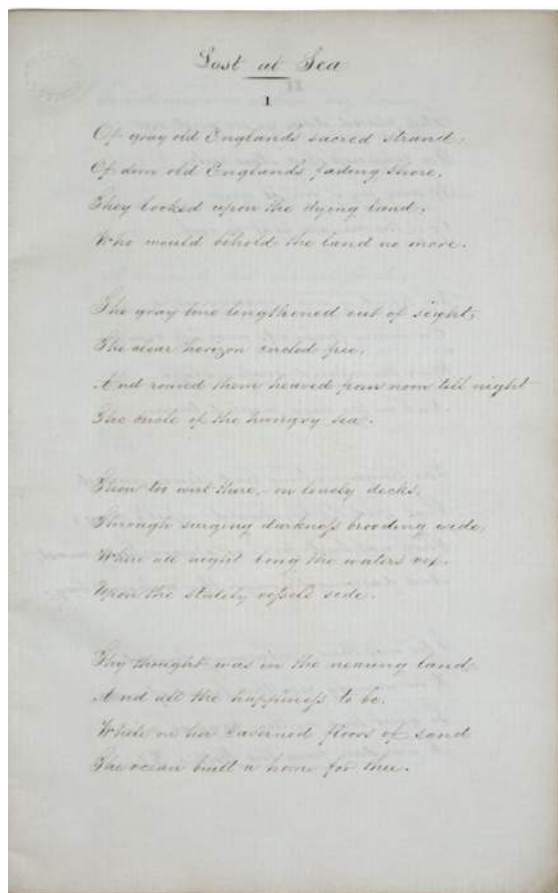 Lost at Sea
1
Of gray old Englands sacred strand,
Of dim old Englands fading shore,
They looked upon the dying land,
Who would behold the land no more.
The gray line lengthened out of sight,
The clear horizon circled free,
And round them heaved from noon till night
The circle of the hungry sea.
Thou too wert there, - on lonely decks,
Through surging darkness brooding wide,
Where all night long the waters vex
Upon the stately vessels side.
Thy thought was in the nearing land
And all the happiness to be,
While on her caverned floors of sand
The ocean built a home for thee.